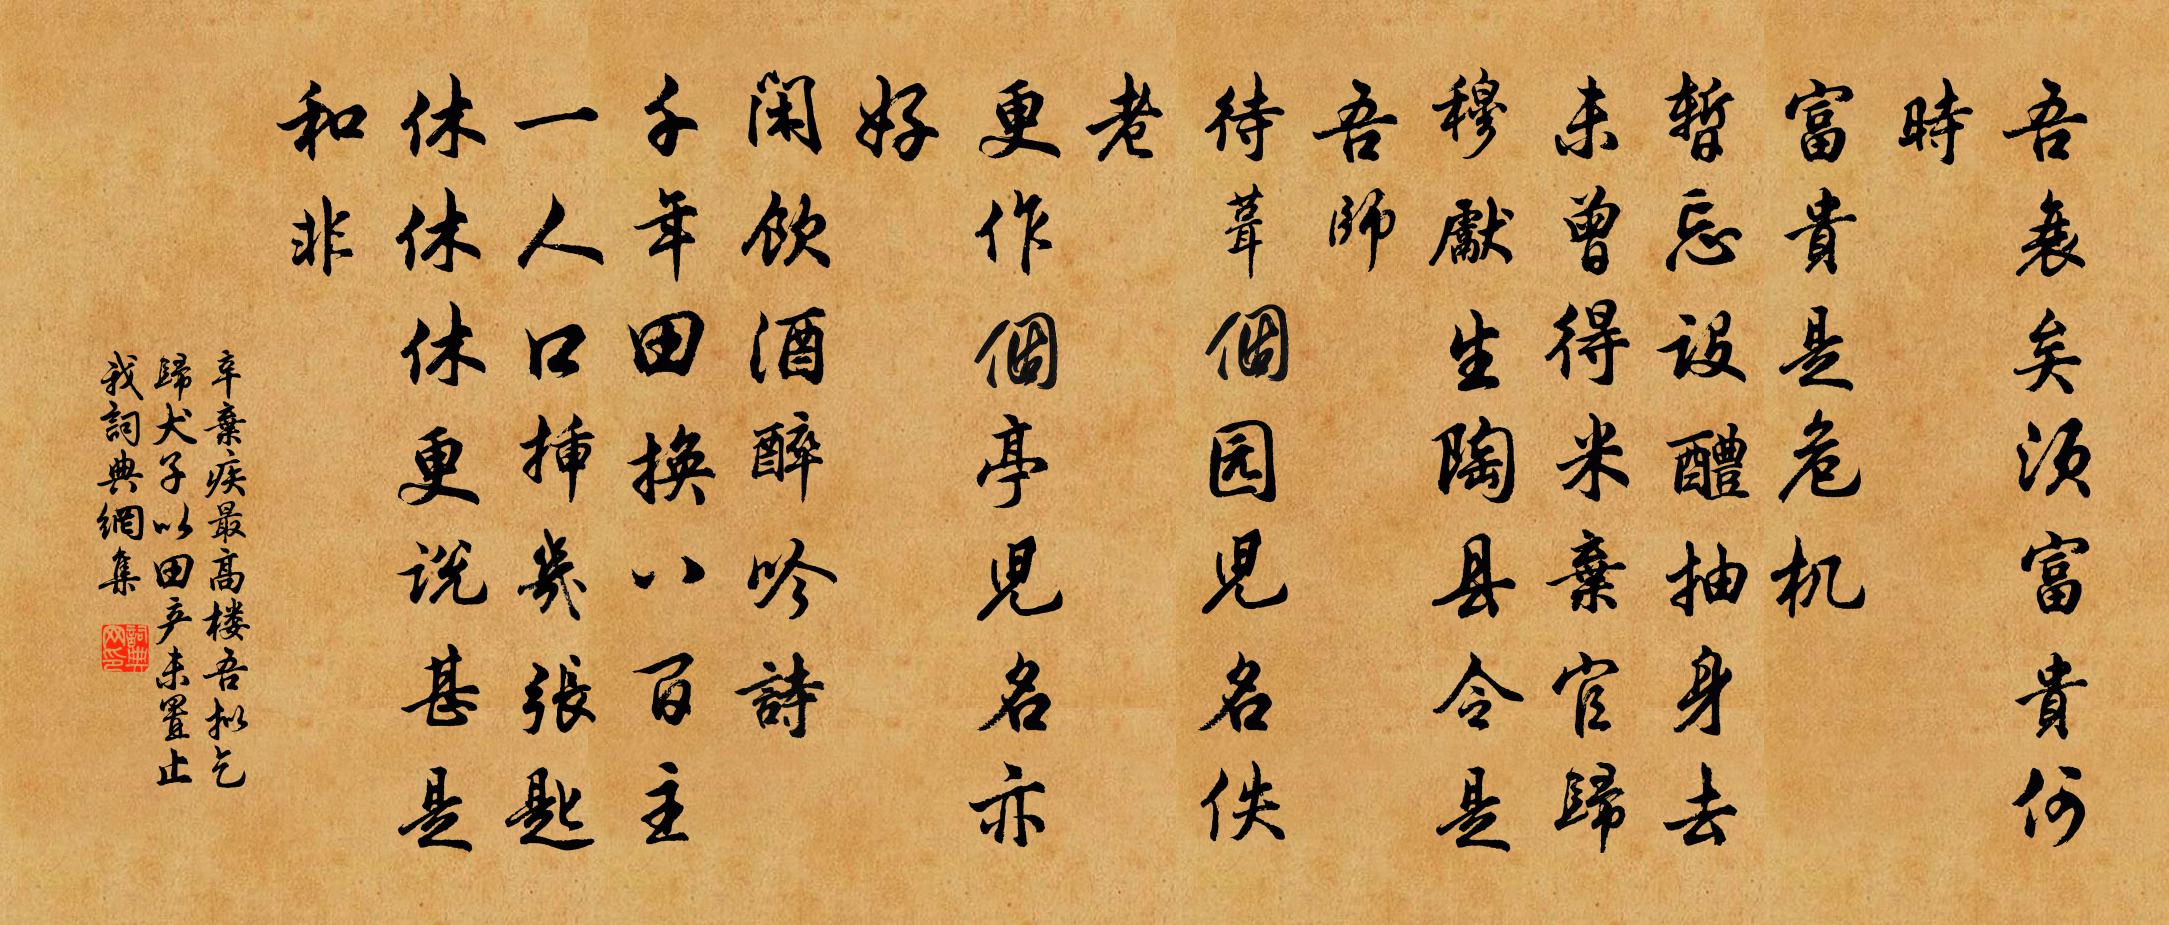 吾衰矣須富貴何
時
富貴是危机
暫忘設醴抽身去
未曾得米棄官歸
穆獻生陶县令是
吾師
待葺個园児名佚
老
更作個亭児名亦
好
閑飲酒醉吟詩
千年田換八百主
一人口插幾張匙
休休休更説甚是
和非
辛棄疾最高楼吾拟乞
歸犬子以田产未置止
我詞典網集
詞典
网印